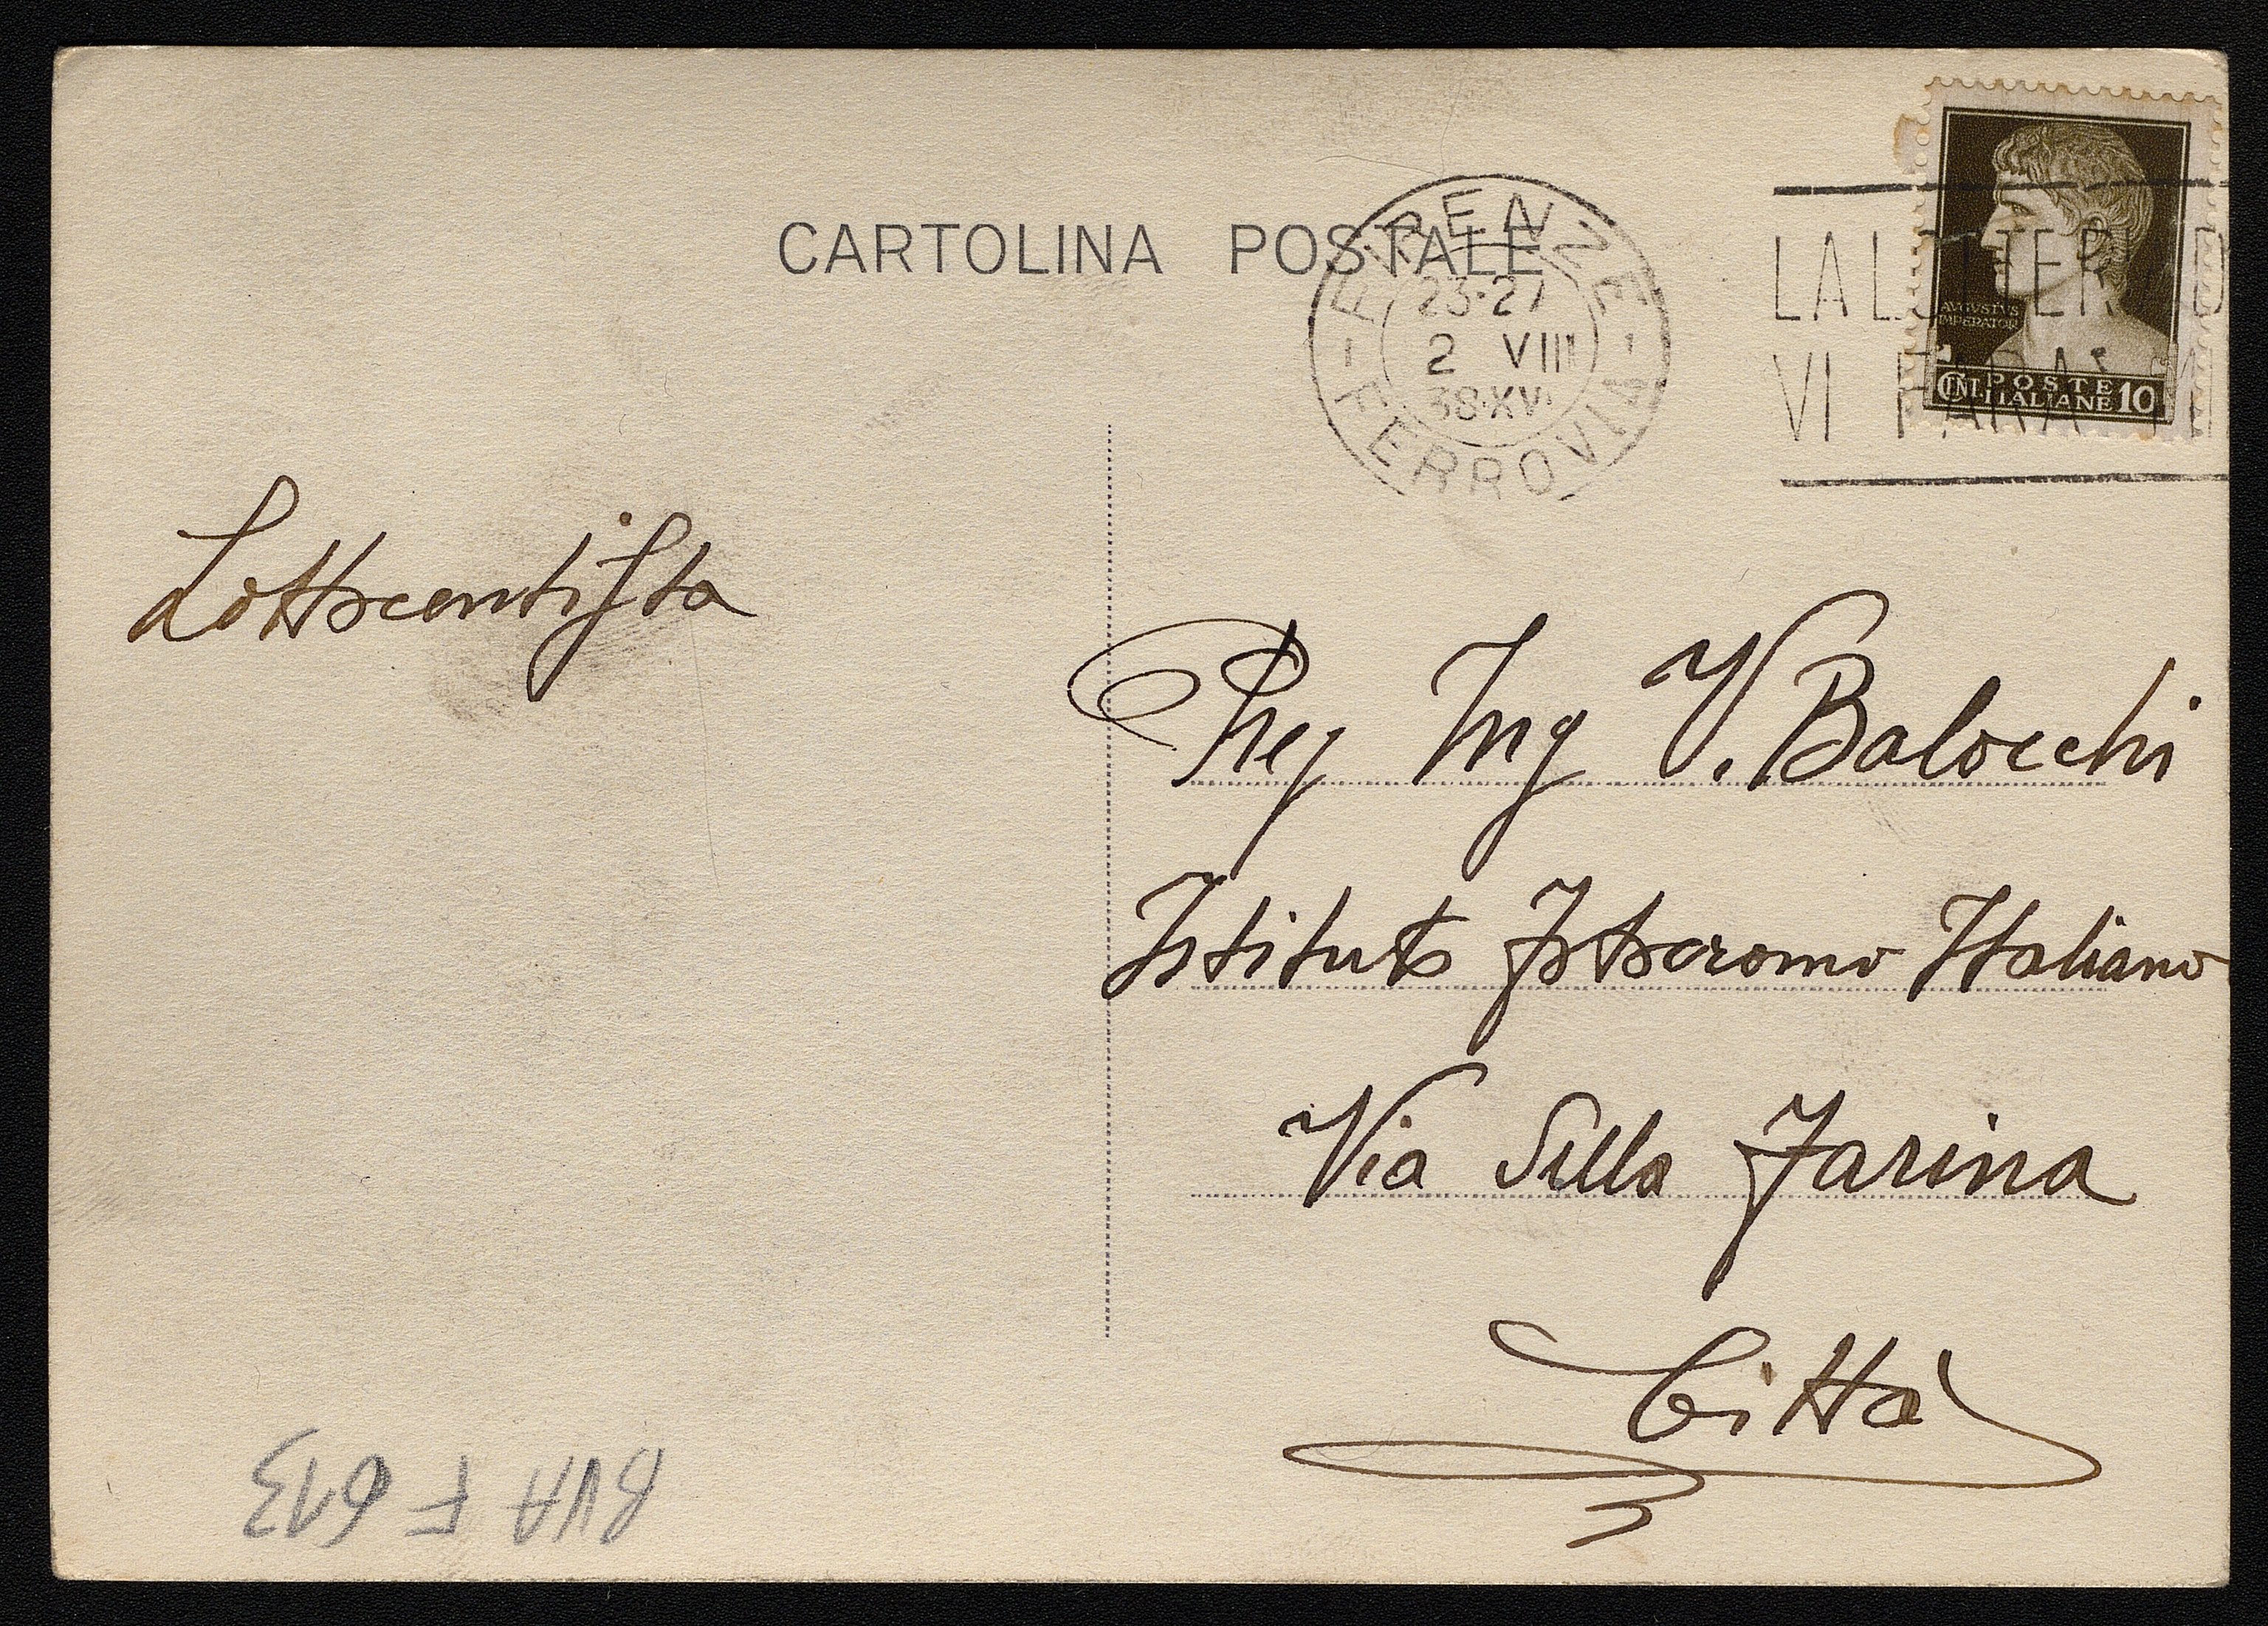 CARTOLINA POSTALE
FIRENZE
23·27
2 VIII
38·XVI
FERROVIA
LA LOTTERIA D
VI FARA'
AVGVSTVS
IMPERATOR
CENT. POSTE ITALIANE 10
Lottocentista
Preg Ing V. Balocchi
Istituto Fotocromo Italiano
Via Silla Farina
Città
BVA F 613